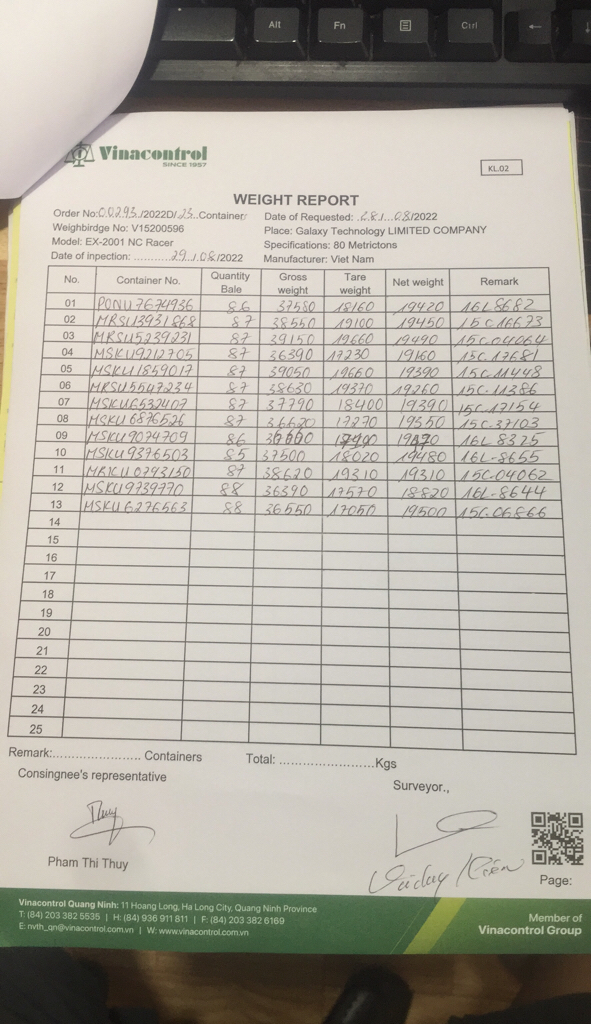 Alt Fn Ctrl
Vinacontrol
SINCE 1957
KL.02
WEIGHT REPORT
Order No:00293/2022D/23..Container Date of Requested: .28./...08/2022
Weighbirdge No: V15200596 Place: Galaxy Technology LIMITED COMPANY
Model: EX-2001 NC Racer Specifications: 80 Metrictons
Date of inpection: ...........29../.08./2022 Manufacturer: Viet Nam
No. Container No. Quantity Bale Gross weight Tare weight Net weight Remark
01 PONU7674936 86 37580 18160 19420 16L8682
02 MRSU3931868 87 38550 19100 19450 15C16673
03 MRSU5239231 87 39150 19660 19490 15C-04064
04 MSKU9212705 87 36390 17230 19160 15C-17681
05 MSKU1859017 87 39050 19660 19390 15C-11448
06 MRSU5547234 87 38630 19370 19260 15C-11386
07 MSKU6532407 87 37790 18400 19390 15C-17154
08 MSKU6876526 87 36620 17270 19350 15C-37103
09 MSKU9074709 86 16L8325
10 MSKU9376503 85 37500 18020 19480 16L-8655
11 MRKU0793150 87 38620 19310 19310 15C-04062
12 MSKU9739770 88 36390 17570 18820 16L-8644
13 MSKU6276563 88 36550 17050 19500 15C-06866
14
15
16
17
18
19
20
21
22
23
24
25
Remark:........................ Containers Total: .........................Kgs
Consingnee's representative
Surveyor.,
Thuy
Pham Thi Thuy
Page:
Vinacontrol Quang Ninh: 11 Hoang Long, Ha Long City, Quang Ninh Province
T: (84) 203 382 5535 | H: (84) 936 911 811 | F: (84) 203 382 6169
E: nvth_qn@vinacontrol.com.vn | W: www.vinacontrol.com.vn
Member of
Vinacontrol Group